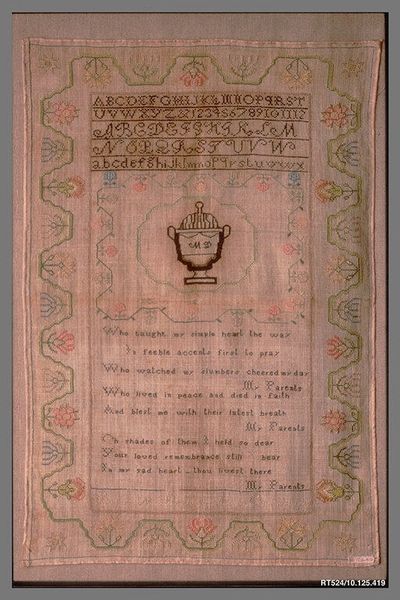 ABCDEFGHIJKLMNOPQRST
UVWXYZ&123456789101112
ABCDEFGHIKLM
NOPQRSTUVW
abcdefghijklmnopqrstuvwxyz
MD
Who taught my simple heart the way
In feeble accents first to pray
Who watched my slumbers cheered my day
My Parents
Who lived in peace and died in faith
And blest me with their latest breath
My Parents
Oh shades of them I held so dear
Your loved remembrance still bear
In my sad heart thou livest there
My Parents
RT524/10.125.419